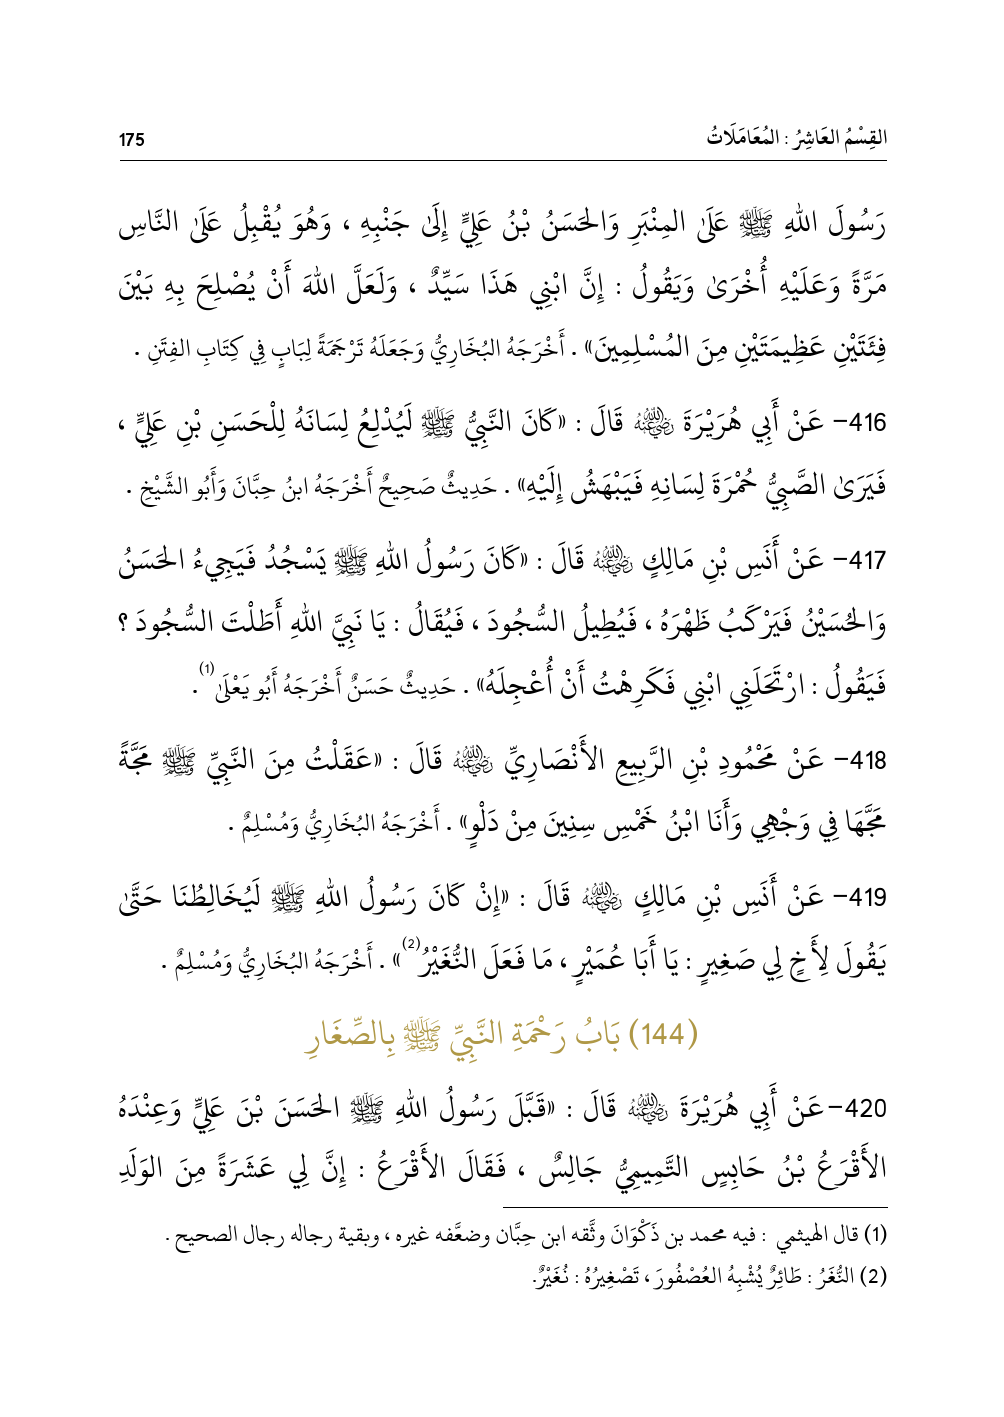 القِسْمُ العَاشِرُ : المُعَامَلَاتُ 175
رَسُولَ اللهِ ﷺ عَلَى المِنْبَرِ وَالحَسَنُ بْنُ عَلِيٍّ إِلَىٰ جَنْبِهِ ، وَهُوَ يُقْبِلُ عَلَى النَّاسِ
مَرَّةً وَعَلَيْهِ أُخْرَىٰ وَيَقُولُ : إِنَّ ابْنِي هَذَا سَيِّدٌ ، وَلَعَلَّ اللهَ أَنْ يُصْلِحَ بِهِ بَيْنَ
فِئَتَيْنِ عَظِيمَتَيْنِ مِنَ المُسْلِمِينَ» . أَخْرَجَهُ البُخَارِيُّ وَجَعَلَهُ تَرْجَمَةً لِبَابٍ فِي كِتَابِ الفِتَنِ .
416- عَنْ أَبِي هُرَيْرَةَ رضي الله عنه قَالَ : «كَانَ النَّبِيُّ ﷺ لَيُدْلِعُ لِسَانَهُ لِلْحَسَنِ بْنِ عَلِيٍّ ،
فَيَرَىٰ الصَّبِيُّ حُمْرَةَ لِسَانِهِ فَيَبْهَشُ إِلَيْهِ» . حَدِيثٌ صَحِيحٌ أَخْرَجَهُ ابنُ حِبَّانَ وَأَبُو الشَّيْخِ .
417- عَنْ أَنَسِ بْنِ مَالِكٍ رضي الله عنه قَالَ : «كَانَ رَسُولُ اللهِ ﷺ يَسْجُدُ فَيَجِيءُ الحَسَنُ
وَالحُسَيْنُ فَيَرْكَبُ ظَهْرَهُ ، فَيُطِيلُ السُّجُودَ ، فَيُقَالُ : يَا نَبِيَّ اللهِ أَطَلْتَ السُّجُودَ ؟
فَيَقُولُ : ارْتَحَلَنِي ابْنِي فَكَرِهْتُ أَنْ أُعْجِلَهُ» . حَدِيثٌ حَسَنٌ أَخْرَجَهُ أَبُو يَعْلَىٰ (1) .
418- عَنْ مَحْمُودِ بْنِ الرَّبِيعِ الأَنْصَارِيِّ رضي الله عنه قَالَ : «عَقَلْتُ مِنَ النَّبِيِّ ﷺ مَجَّةً
مَجَّهَا فِي وَجْهِي وَأَنَا ابْنُ خَمْسِ سِنِينَ مِنْ دَلْوٍ» . أَخْرَجَهُ البُخَارِيُّ وَمُسْلِمٌ .
419- عَنْ أَنَسِ بْنِ مَالِكٍ رضي الله عنه قَالَ : «إِنْ كَانَ رَسُولُ اللهِ ﷺ لَيُخَالِطُنَا حَتَّىٰ
يَقُولَ لِأَخٍ لِي صَغِيرٍ : يَا أَبَا عُمَيْرٍ ، مَا فَعَلَ النُّغَيْرُ (2)» . أَخْرَجَهُ البُخَارِيُّ وَمُسْلِمٌ .
(144) بَابُ رَحْمَةِ النَّبِيِّ ﷺ بِالصِّغَارِ
420- عَنْ أَبِي هُرَيْرَةَ رضي الله عنه قَالَ : «قَبَّلَ رَسُولُ اللهِ ﷺ الحَسَنَ بْنَ عَلِيٍّ وَعِنْدَهُ
الأَقْرَعُ بْنُ حَابِسٍ التَّمِيمِيُّ جَالِسٌ ، فَقَالَ الأَقْرَعُ : إِنَّ لِي عَشَرَةً مِنَ الوَلَدِ
(1) قال الهيثمي : فيه محمد بن ذَكْوَانَ وثَّقه ابن حِبَّان وضعَّفه غيره ، وبقية رجاله رجال الصحيح .
(2) النُّغَرُ : طَائِرٌ يُشْبِهُ العُصْفُورَ ، تَصْغِيرُهُ : نُغَيْرٌ.